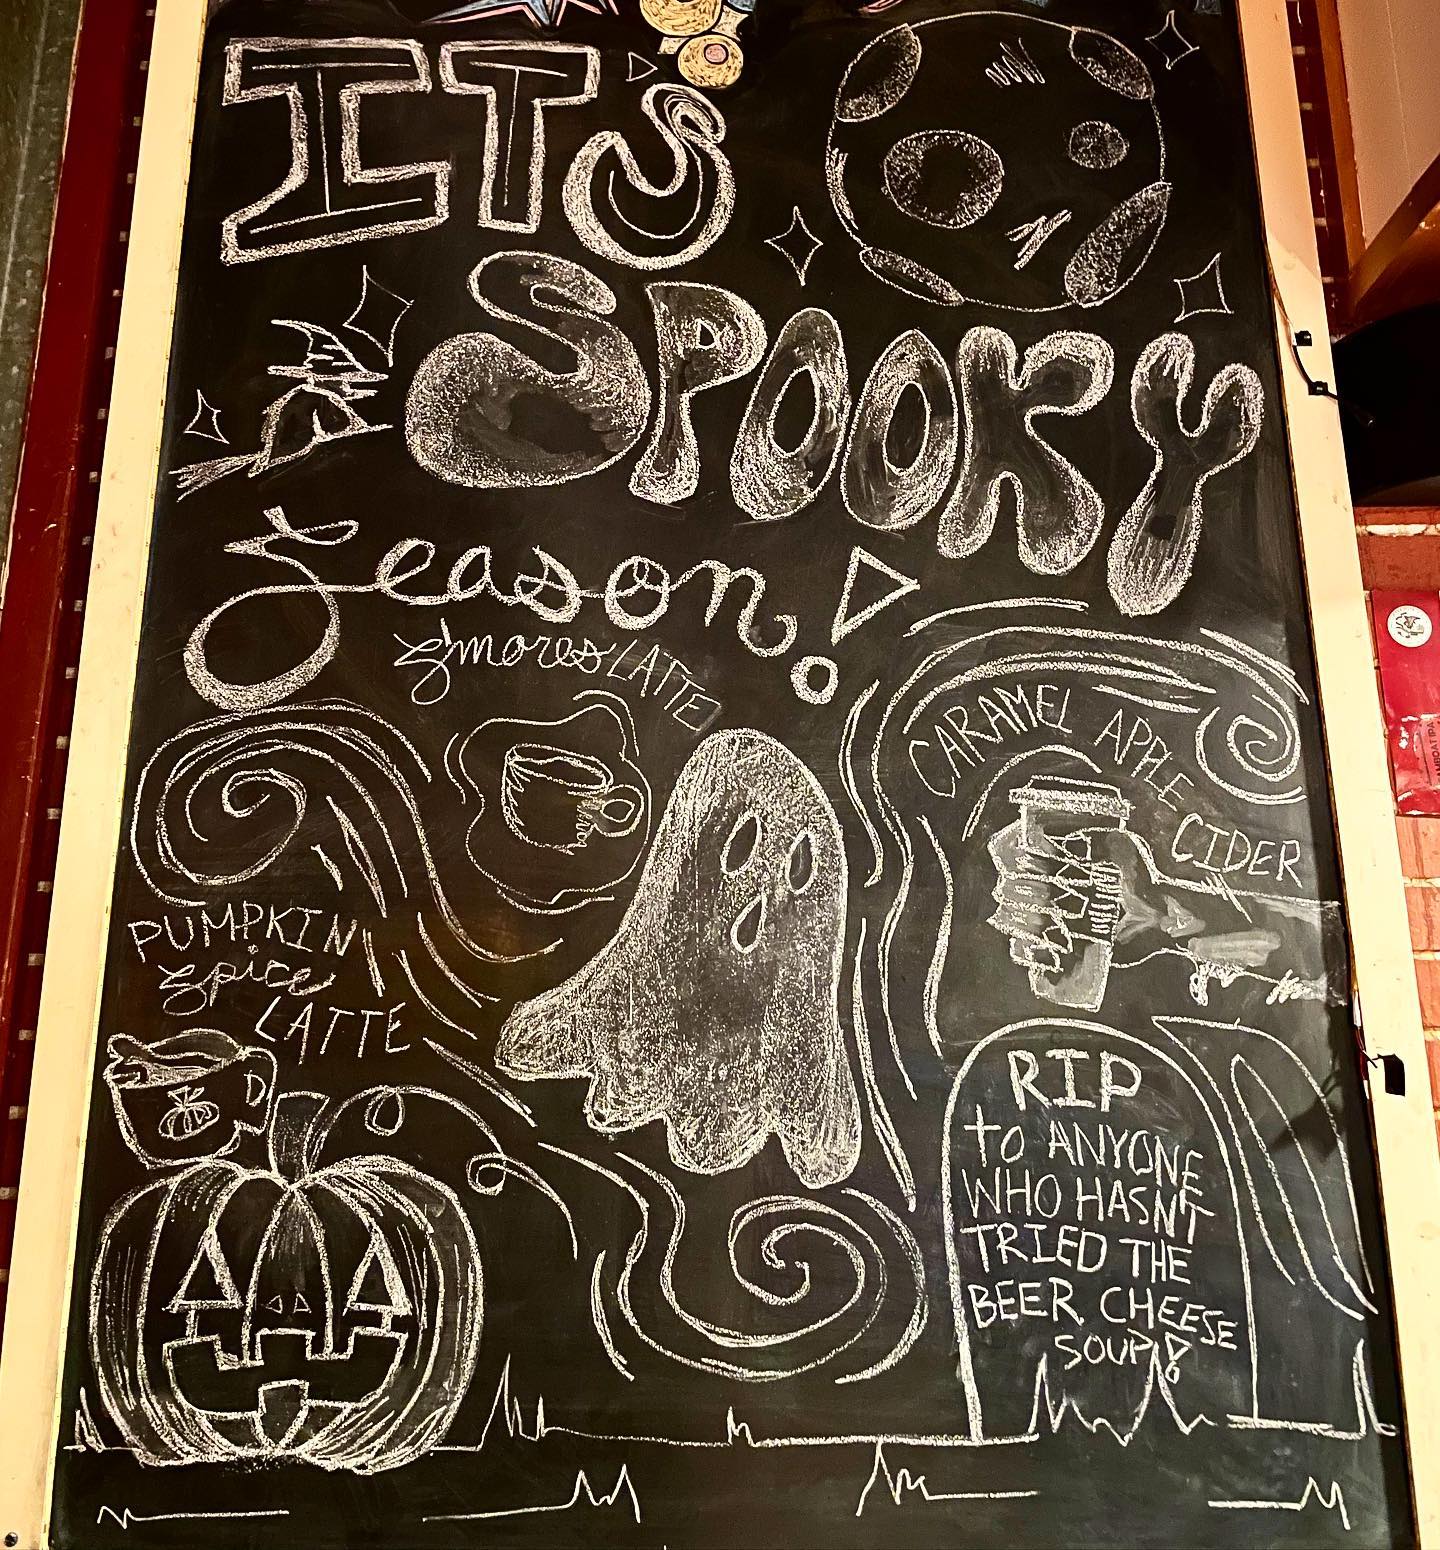 ITS
SPOOKY
Season!
S'mores LATTE
CARAMEL APPLE
CIDER
PUMPKIN
Spice
LATTE
RIP
to ANYONE
WHO HASN'T
TRIED THE
BEER CHEESE
SOUP!